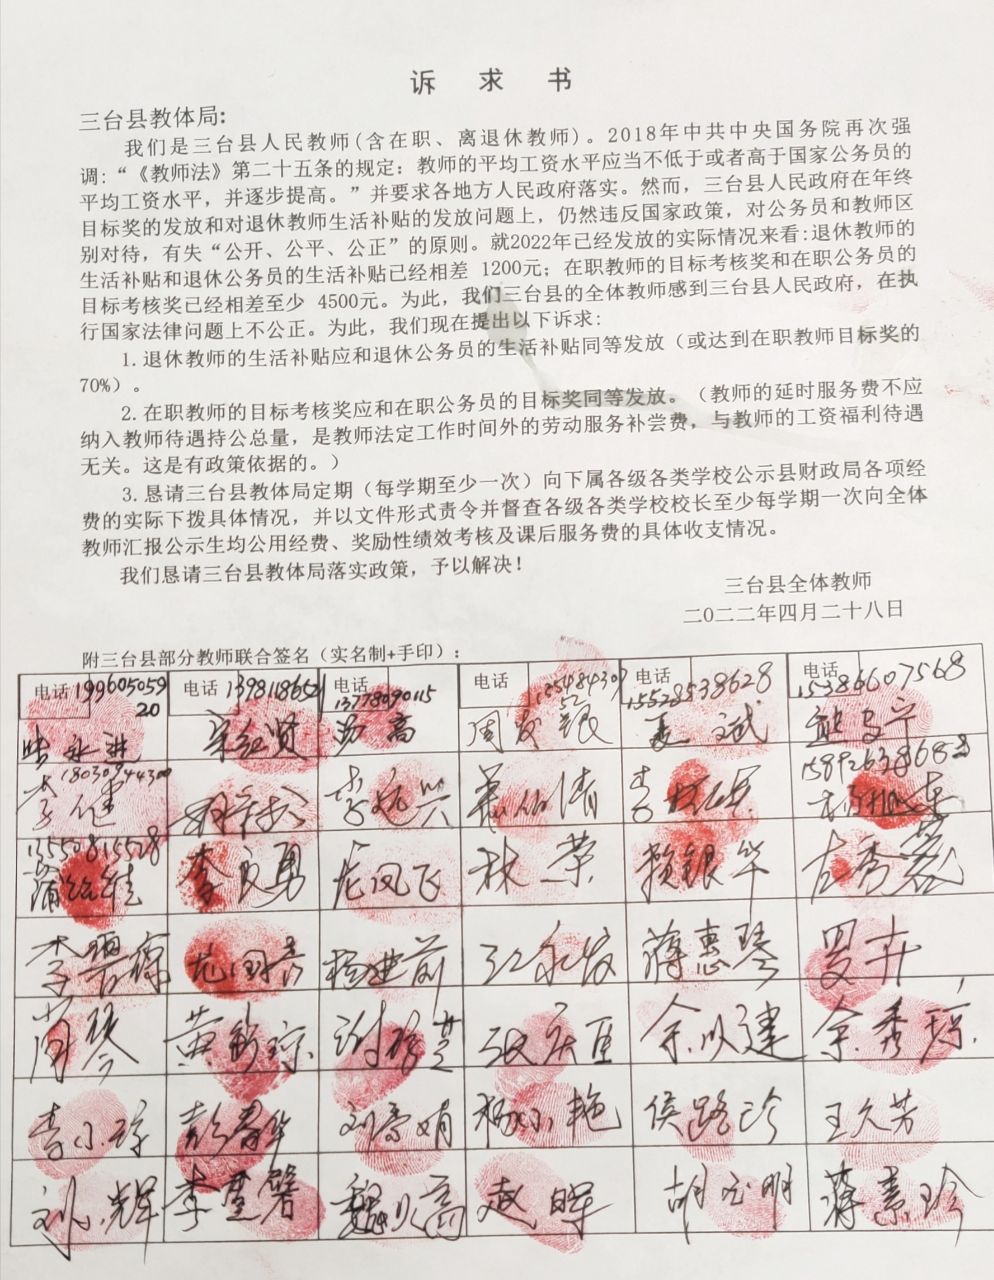 诉 求 书
三台县教体局:
我们是三台县人民教师(含在职、离退休教师)。2018年中共中央国务院再次强
调:“《教师法》第二十五条的规定: 教师的平均工资水平应当不低于或者高于国家公务员的
平均工资水平, 并逐步提高。”并要求各地方人民政府落实。然而, 三台县人民政府在年终
目标奖的发放和对退休教师生活补贴的发放问题上, 仍然违反国家政策, 对公务员和教师区
别对待, 有失“公开、公平、公正”的原则。就2022年已经发放的实际情况来看:退休教师的
生活补贴和退休公务员的生活补贴已经相差 1200元; 在职教师的目标考核奖和在职公务员的
目标考核奖已经相差至少 4500元。为此, 我们三台县的全体教师感到三台县人民政府, 在执
行国家法律问题上不公正。为此, 我们现在提出以下诉求:
1. 退休教师的生活补贴应和退休公务员的生活补贴同等发放 (或达到在职教师目标奖的
70%) 。
2. 在职教师的目标考核奖应和在职公务员的目标奖同等发放。 (教师的延时服务费不应
纳入教师待遇持公总量, 是教师法定工作时间外的劳动服务补尝费, 与教师的工资福利待遇
无关。这是有政策依据的。)
3. 恳请三台县教体局定期 (每学期至少一次) 向下属各级各类学校公示县财政局各项经
费的实际下拨具体情况, 并以文件形式责令并督查各级各类学校校长至少每学期一次向全体
教师汇报公示生均公用经费、奖励性绩效考核及课后服务费的具体收支情况。
我们恳请三台县教体局落实政策, 予以解决!
三台县全体教师
二〇二二年四月二十八日
附三台县部分教师联合签名 (实名制+手印) :
电话 19960505920 电话 电话 13778090115 电话 电话 15528538628 电话 15386607568
夏斌
李健
李文勇 龙凤飞 林荣 赖银华 左秀蓉
龙国青 杨进前 江永发 蒋惠琴 罗卉
周琴 黄新琼 余以建 余秀琼
李小琼 彭春华 杨小艳 侯路珍 王久芳
刘小辉 赵晖 胡定明 蒋素珍